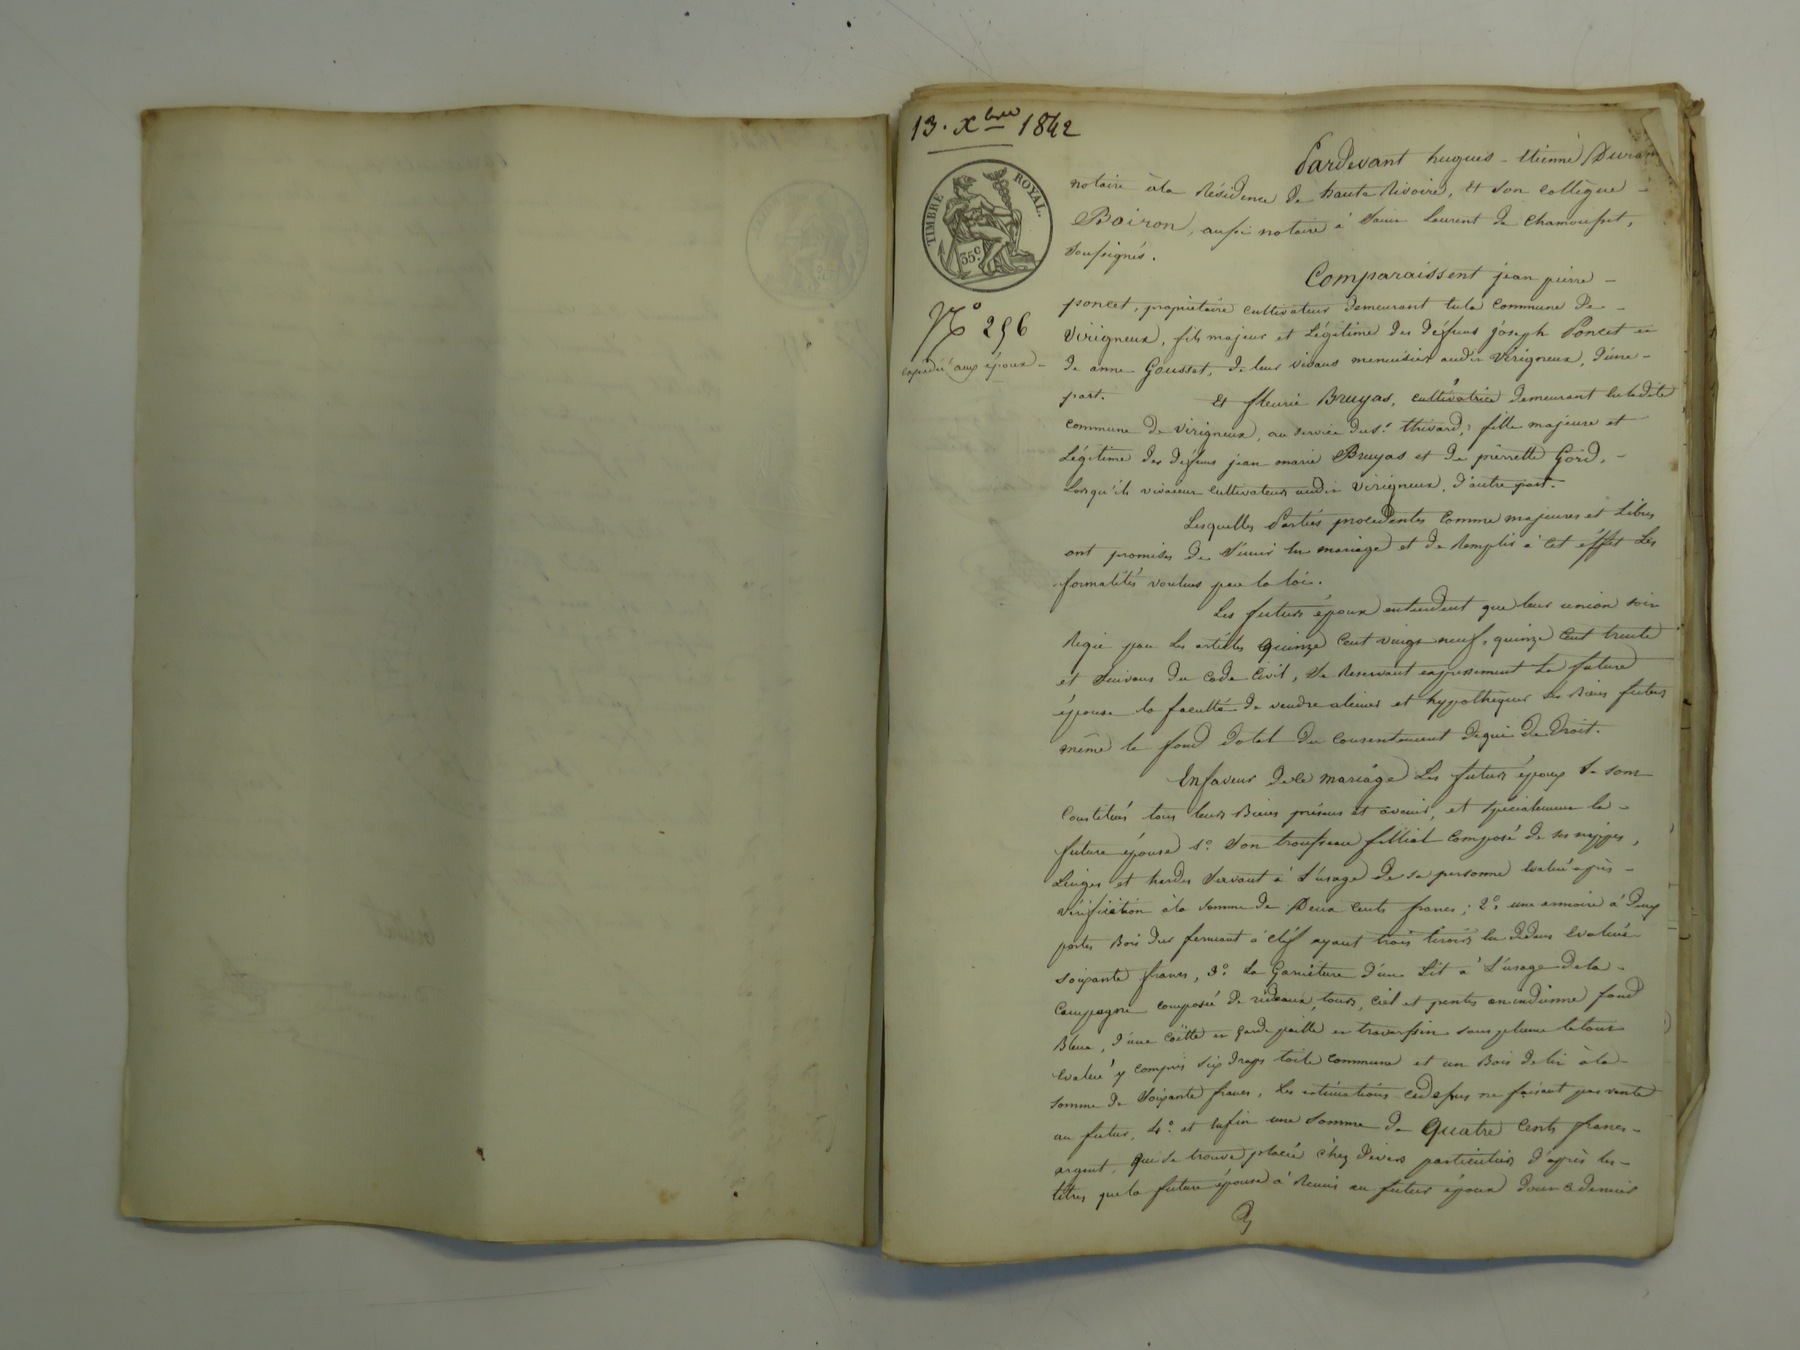 13. Xbre 1842
TIMBRE ROYAL.
35c
No 256
expédié aux époux
Pardevant hugues - étienne Durand
notaire à la Résidence de haute Rivoire, et son collègue
Boiron, aussi notaire à Saint Laurent de Chamousset,
soussignés.
Comparaissent jean pierre
poncet, propriétaire cultivateur demeurant en la commune de
Virigneux, fils majeur et Légitime des défunts joseph Poncet et
de anne Gousset, de leur vivans menuisier audit Virigneux, d'une
part. Et fleurie Bruyas, cultivatrice demeurant en ladite
commune de Virigneux, au service du sr thivard, fille majeure et
Légitime des défunts jean marie Bruyas et de pierrette Gord,
Lorsqu'ils vivaient cultivateurs audit Virigneux, d'autre part.
Lesquelles Parties procédantes comme majeures et Libres
ont promises de s'unir en mariage et de Remplir à cet éffet Les
formalités voulues par la loi.
Les futurs époux entendent que leur union soit
Régie par les articles quinze cent vingt neuf, quinze cent trente
et suivans du Code Civil, se Reservant expressement La future
épouse la faculté de vendre aliener et hypothéquer ses Biens futurs
même le fond dotal du consentement de qui de droit.
En faveur de ce mariage Les futurs époux se sont
Constitués tous leurs Biens présens et avenir, et spécialement la
future épouse 1o. Son trousseau fillial composé de ses nippes,
Linges et hardes servant à L'usage de sa personne évalué après
vérification à la somme de Deux cents francs; 2o. une armoire à deux
portes Bois dur fermant à cléf ayant trois tiroirs en dedans évaluée
soixante francs, 3o. La Garniture d'un Lit à L'usage de la
Campagne composée de rideaux, tours, ciel et pentes en indienne fond
Bleu, d'une Coëtte et garde paille et traversin sans plume le tout
évalué y compris six draps toile commune et un Bois de lit à la
somme de soixante francs, Les estimations cidessus ne faisant pas vente
au futur, 4o. et enfin une somme de Quatre cents francs
argent, qui se trouve placée chez divers particuliers d'après les
titres que la future épouse à Remis au futur époux dont ce dernier